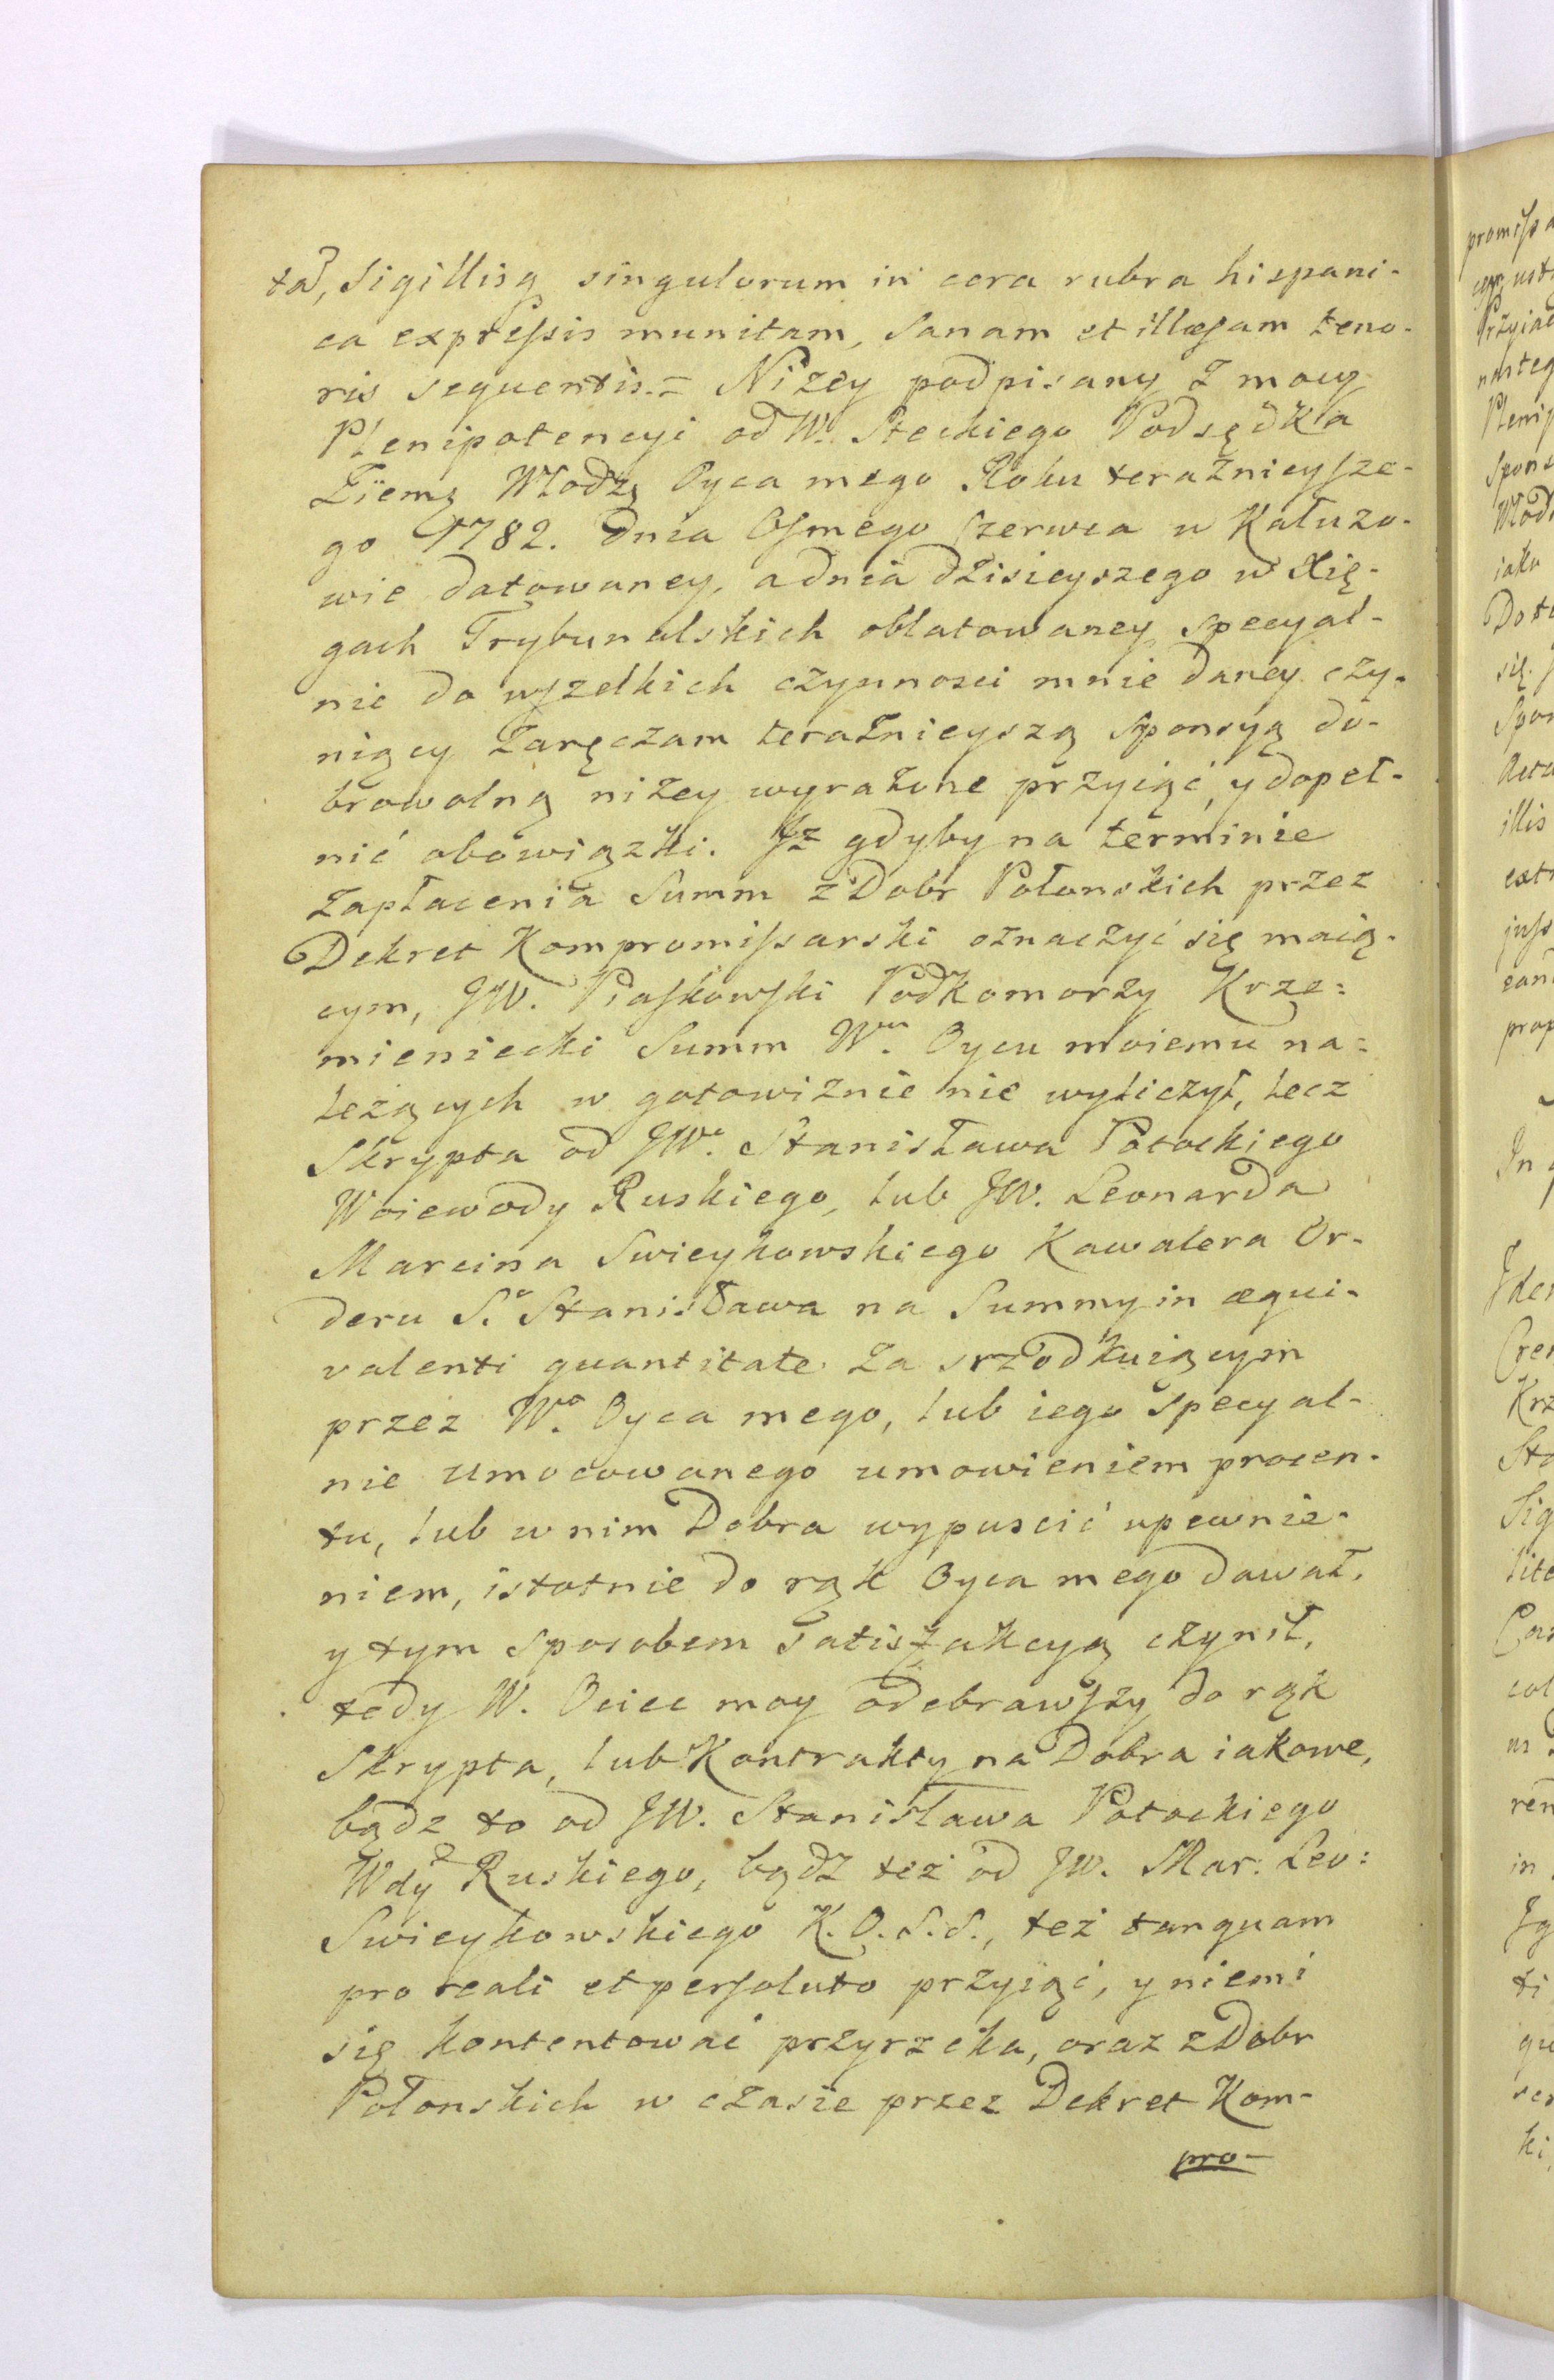 ta, Sigillisq singulorum in cera rubra hispani-
ca expreſsis munitam, Sanam et illæsam teno-
ris sequentis. = Niżey podpisany z mocy
Plenipotencyi od W. Steckiego Podsędka
Ziem: Włodz: Oyca mego Roku teraznieyſze-
go 1782. dnia Oſmego Czerwca w Kałuzo-
wie datowaney, a dnia dzisieyszego w Xię-
gach Trybunalskich oblatowaney specyal-
nie do wſzelkich czynnosci mnie daney czy-
niący zaręczam teraznieyszą Sponsyą do-
browolną niżey wyrażone przyiąć, y dopeł-
nić obowiązki. Jż gdyby na terminie
zapłacenia Summ z Dobr Połonskich przez
Dekret Kompromiſsarski oznaczyć się maią-
cym, JW. Piaſkowſki Podkomorzy Krze:
mieniecki Summ Wu. Oycu moiemu na:
leżących w gotowiznie nie wyliczył, lecz
Skrypta od JWo. Stanisława Potockiego
Woiewody Ruskiego, lub JW. Leonarda
Marcina Swieykowskiego Kawalera Or-
deru So. Stanisława na Summy in æqui-
valenti quantitate za srzodkuiącym
przez Wo. Oyca mego, lub iego specyal-
nie umocowanego umowieniem procen-
tu, lub w nim Dobra wypuscić upewnie-
niem, istotnie do rąk Oyca mego dawał,
y tym sposobem satisfakcyą czynił,
tedy W. Ociec moy odebrawſzy do rąk
Skrypta, lub Kontrakty na Dobra iakowe,
bądz to od JW. Stanisława Potockiego
Wdy Ruskiego, bądz też od JW. Mar: Leo:
Swieykowskiego K. O. S. S., też tanquam
pro reali et perſoluto przyiąć, y niemi
się kontentować przyrzeka, oraz z Dobr
Połonskich w czasie przez Dekret Kom-
pro-